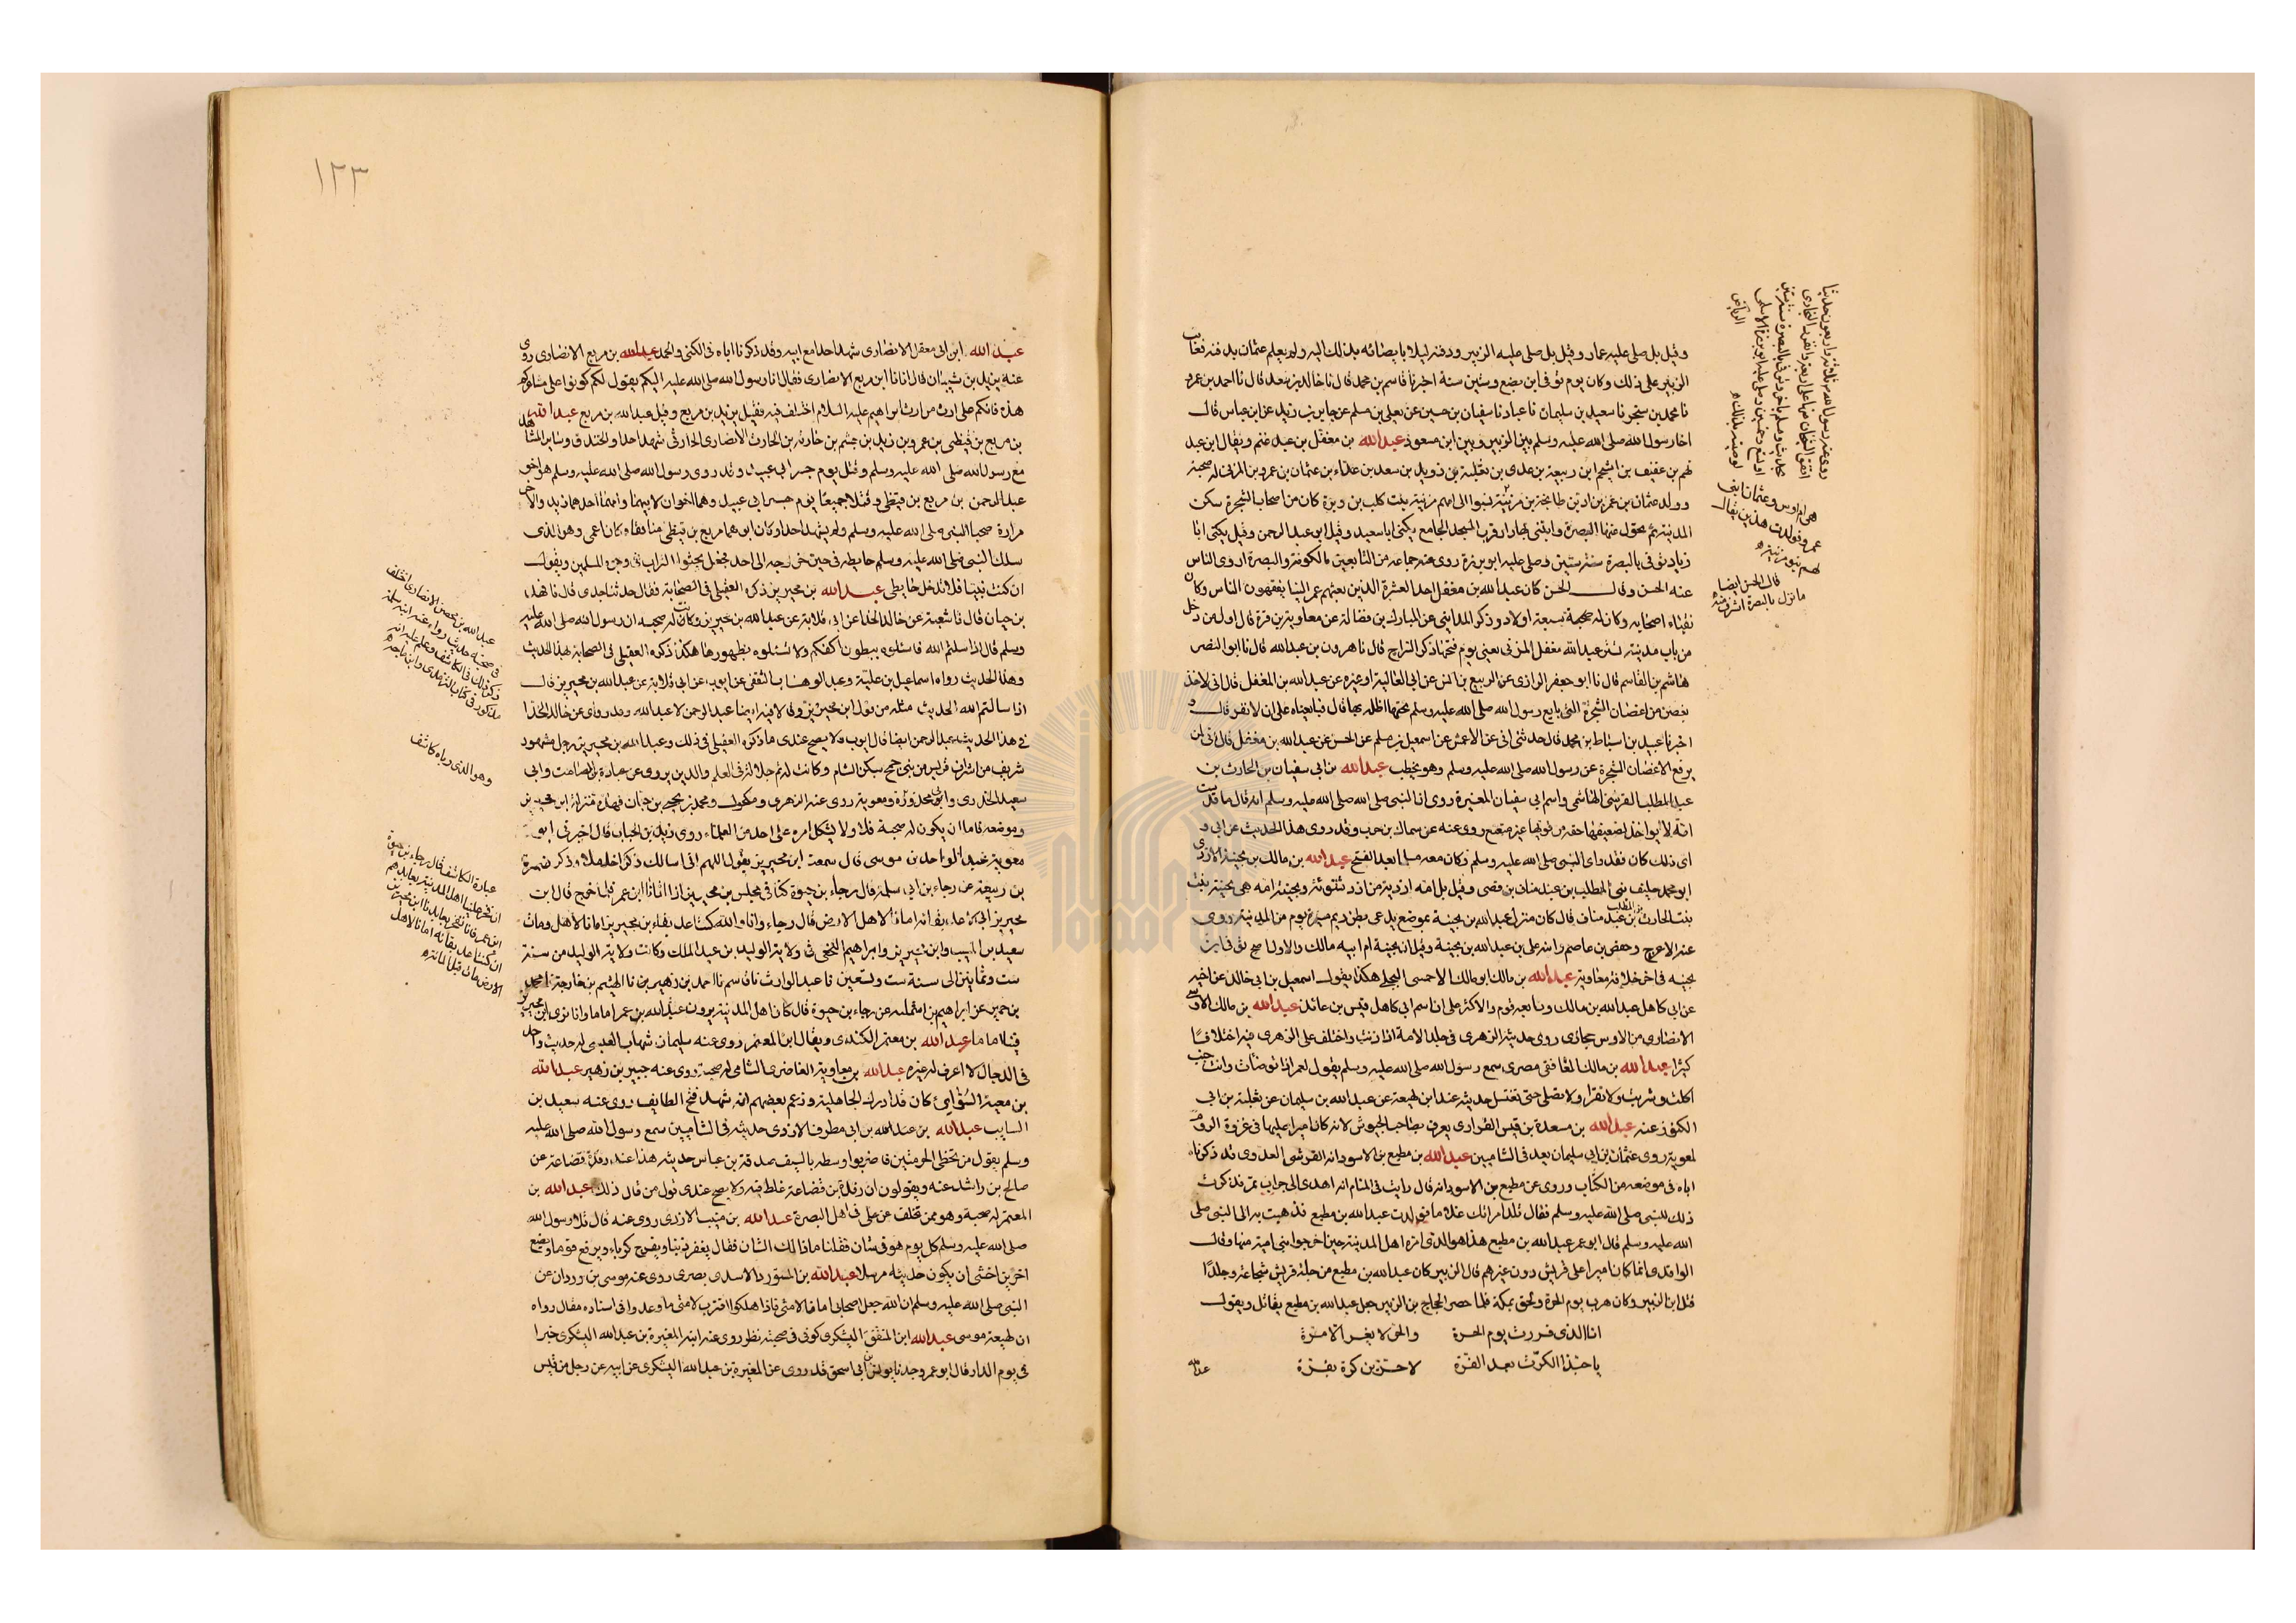 وقيل بل صلى عليه عمار وقيل بل صلى عليه الزبير ودفنه ليلا بايصائه بذلك اليه ولم يعلم عثمان بدفنه فعاتب
الزبير على ذلك وكان يوم توفى ابن بضع وستين سنة اخبرنا قاسم بن محمد قال نا خالد بن سعد قال نا احمد بن عمرو
نا محمد بن سنجر نا سعيد بن سليمان نا عباد نا سفيان بن حسين عن يعلى بن مسلم عن جابر بن زيد عن ابن عباس قال
اخا رسول الله صلى الله عليه وسلم بين الزبير وبين ابن مسعود عبد الله بن مغفل بن عبد غنم ويقال ابن عبد
نهم بن عفيف بن اسحم ابن ربيعة بن عدى بن ثعلبة بن ذويد بن سعد بن عداء بن عثمان بن عمرو بن المزنى له صحبة
وولد عثمان بن عمرو بن اد بن طابخة بن مزينة نسبوا الى امهم مزينة بنت كلب بن وبرة كان من اصحاب الشجرة سكن
المدينة ثم تحول عنها البصرة وابتنى بها دارا قرب المسجد الجامع يكنى ابا سعيد وقيل ابن عبد الرحمن وقيل يكنى ابا
زياد توفى بالبصرة سنة ستين وصلى عليه ابو برزة روى عنه جماعة من التابعين بالكوفة والبصرة اروى الناس
عنه الحسن وقال الحسن كان عبد الله بن مغفل احد العشرة الذين بعثهم عمر الينا يفقهون الناس وكان
نقباء اصحابه وكان له صحبة تسعة اولاد وذكر المداينى عن المبارك بن فضالة عن معاوية بن قرة قال اول من دخل
من باب مدينة تستر عبد الله مغفل المزنى يعنى يوم فتحها ذكر السراج قال نا هرون بن عبد الله قال نا ابو النضر
هاشم بن القاسم قال نا ابو جعفر الرازى عن الربيع بن انس عن ابى العالية او غيره عن عبد الله بن المغفل قال انى لاخذ
بغصن من اغصان الشجرة التى بايع رسول الله صلى الله عليه وسلم تحتها اظله بها قال فبايعناه على ان لا نفر قال و
اخبرنا عبيد بن اسباط بن محمد قال حدثنى ابى عن الاعمش عن اسمعيل بن مسلم عن الحسن عن عبد الله بن مغفل قال انى لمن
يرفع الاغصان الشجرة عن رسول الله صلى الله عليه وسلم وهو يخطب عبد الله بن ابى سفيان بن الحارث بن
عبد المطلب القرشى الهاشمى واسم ابى سفيان المغيرة روى انا النبى صلى الله صلى الله عليه وسلم انه قال ما قدست
امة لا يواخذ لضعيفها حقه من قويها غير متعتع روى عنه عن سماك بن حرب وقد روى هذا الحديث عن ابى و
اى ذلك كان فقد راى النبى صلى الله عليه وسلم وكان معه مسلما بعد الفتح عبد الله بن مالك بن بحينة الازدى
ابو محمد حليف بنى المطلب بن عبد مناف بن قصى وقيل بل امه ازدية من ازد شنوئة وبحينة امه هى بحينة بنت
بنت الحارث بن المطلب بن عبد مناف قال كان منزل عبد الله بن بحينة بموضع يدعى بطن ريم مسيرة يوم من المدينة روى
عنه الاعرج وحفص بن عاصم وابنه على بن عبد الله بن بحينة وقيل ان بحينة ام ابيه مالك والاول اصح توفى ابن
بحينه فى اخر خلافة معاوية عبد الله بن مالك ابو مالك الاحمسى البجلى هكذا يقول اسمعيل بن ابى خالد عن اخيه
عن ابى كاهل عبد الله بن مالك وتابعه قوم والاكثر على ان اسم ابى كاهل قيس بن عائذ عبد الله بن مالك الاوسى
الانصارى من الاوس حجازى روى حديثه الزهرى فى جلد الامة اذا زنت واختلف على الزهرى فيه اختلافا
كثيرا عبد الله بن مالك الغافقى مصرى سمع رسول الله صلى الله عليه وسلم يقول لعمر اذا توضأت وانت جنب
اكلت وشربت ولا تقرا ولا تصلى حتى تغتسل حديثه عند ابن لهيعة عن عبد الله بن سليمان عن ثعلبة بن ابى
الكنود عنه عبد الله بن مسعدة بن قيس الفزارى يعرف بصاحب الجيوش لانه كان اميرا عليها فى غزوة الروم
لمعوية روى عثمان بن ابى سليمان يعد فى الشاميين عبد الله بن مطيع بن الاسود انه القرشى العدوى قد ذكرنا
اباه فى موضعه من الكتاب وروى عن مطيع بن الاسود انه قال رايت فى المنام انه اهدى الى جراب تمر فذكرت
ذلك للنبى صلى الله عليه وسلم فقال تلد امراتك غلاما فولدت عبد الله بن مطيع فذهبت به الى النبى صلى
الله عليه وسلم قال ابو عمر عبد الله بن مطيع هذا هو الذى امره اهل المدينة حين اخرجوا بنى امية منها وقال
الواقدى انما كان اميرا على قريش دون غيرهم قال الزبير كان عبد الله بن مطيع من جلة قريش شجاعة وجلدا
قتل ابن الزبير وكان هرب يوم الحرة ولحق بمكة فلما حصر الحجاج بن الزبير جعل عبد الله بن مطيع يقاتل ويقول
انا الذى فررت يوم الحرة والحر لا يفر الا مرة
يا حبذا الكرّة بعد الفرّة لاجزين كرة بفرة
هى ام اوس وعثمان ابنى
عمرو فولدت هذين يقال
لهم بنو مزينة
قال الحسن ايضا
ما نزل بالبصرة اشرف منه
١٢٣
عبد الله ابن ابى معقل الانصارى شهد احدا مع ابيه وقد ذكرنا اباه فى الكنى والحمد عبد الله بن مربع الانصارى روى
عنه يزيد بن شيبان قال اتانا ابن مربع الانصارى فقال انا رسول الله صلى الله عليه اليكم يقول لكم كونوا على مشاعركم
هذه فانكم على ارث من ارث ابراهيم عليه السلام اختلف فيه فقيل يزيد بن مربع وقيل عبد الله بن مربع عبد الله
بن مربع بن قيظى بن عمرو بن زيد بن جشم بن حارثه بن الحارث الانصارى الحارثى شهد احدا والخندق وساير المشاهد
مع رسول الله صلى الله عليه وسلم وقتل يوم جسر ابى عبيد وقد روى رسول الله صلى الله عليه وسلم هو اخو
عبد الرحمن بن مربع بن قيظى وقتلا جميعا يوم جسر ابى عبيد وهما اخوان لابيهما وامهما احدهما زيد والاخر
مرارة صحبا النبى صلى الله عليه وسلم ولم يشهد احدا وكان ابوهما مربع بن قيظى منافقا وكان اعمى وهو الذى
سلك النبى صلى الله عليه وسلم حايطه فى حين خرجه الى احد فجعل يحثوا التراب فى وجوه المسلمين ويقول
ان كنت نبيا فلا تدخل حايطى عبد الله بن محيريز ذكره العقيلى فى الصحابة فقال حدثنا جدى قال نا فهد
بن حيان قال نا شعبة عن خالد الحذا عن ابى قلابة عن عبد الله بن محيريز وكانت له صحبه ان رسول الله صلى الله عليه
وسلم قال اذا سلتم الله فاسئلوه ببطون اكفكم ولا تسئلوه بظهورها هكذا ذكره العقيلى فى الصحابة بهذا الحديث
وهذا الحديث رواه اسماعيل بن علية وعبد الوهاب الثقفى عن ايوب عن ابى قلابة عن عبد الله بن محيريز قال
اذا سالتم الله الحديث مثله من قول ابن محيريز وقال فيه ايضا عبد الرحمن لا عبد الله وقد روى عن خالد الحذا
فى هذا الحديث عبد الرحمن ايضا قال ايوب ولا يصح عندى ما ذكره العقيلى فى ذلك وعبد الله بن محيريز رجل مشهود
شريف من اشراف قريش من بنى جمح سكن الشام وكانت له ثم جلالة فى العلم والدين يروى عن عبادة بن الصامت وابى
سعيد الخدرى وابى محذورة ومعوية روى عنه الزهرى ومكحول ومحمد بن يحيى بن حبان فهذه منزلة ابن محيريز
وموضعه فاما ان يكون له صحبة فلا ولا يشكل امره على احد من العلماء روى زيد بن الحباب قال اخبرنى ابو
معوية عبد الواحد بن موسى قال سمعت ابن محيريز يقول اللهم انى اسالك ذكرا خاملا وذكر ضمرة
بن ربيعة عن رجاء بن ابى سلمة قال رجاء بن حيوة كنا فى مجلس بن محيريز اذا اتانا ابن عمر فلما خرج قال ابن
محيريز انى كاعد بقائه امانا لاهل الارض قال رجاء وانا والله كنت اعد بقاء بن محيريز امانا لاهل ومات
سعيد بن المسيب وابن محيريز وابراهيم النخعى فى ولاية الوليد بن عبد الملك وكانت ولاية الوليد من سنة
ست وثمانين الى سنة ست وتسعين نا عبد الوارث نا قاسم نا احمد بن زهير بن نا الهيثم بن خارجة نا محمد
بن حمير عن ابراهيم بن ابى عبلة عن رجاء بن حيوة قال كان اهل المدينة يرون عبد الله بن عمر اماما وانا نرى ابن محيريز
فينا اماما عبد الله بن معتمر الكندى ويقال ابن المعتمر روى عنه سليمان شهاب العبدى له حديث واحد
فى الدجال لا اعرف له غيره عبد الله بن معاوية الغاضرى الشامى له صحبة روى عنه جبير بن زهير عبد الله
بن معية السوائى كان قد ادرك الجاهلية وزعم بعضهم انه شهد فتح الطايف روى عنه سعيد بن
السايب عبد الله بن عبد الله بن ابى مطرف الازدى حديثه فى الشاميين سمع رسول الله صلى الله عليه
وسلم يقول من تخطى الحرمتين فاضربوا وسطه بالسيف صدقة بن عباس حديثه هذا عند رفدة قضاعة عن
صالح بن راشد عنه ويقولون ان رفدة بن قضاعة غلط فيه ولا يصح عندى قول من قال ذلك عبد الله بن
المعتمر له صحبة وهو ممن تخلف عن على فى اهل البصرة عبد الله بن منيب الازدى روى عنه قال تلا رسول الله
صلى الله عليه وسلم كل يوم هو فى شان فقلنا ما ذالك الشان فقال يغفر ذنبا ويفرج كربا ويرفع قوما ويضع
اخرين اخشى ان يكون حديثه مرسلا عبد الله بن المستورد الاسدى بصرى روى عنه موسى بن وردان عن
النبى صلى الله عليه وسلم ان الله جعل اصحابى امانا لامتى فاذا هلكوا اقترب لامتى ما وعدوا فى اسناده مقال رواه
ان لهيعة موسى عبد الله ابن المنفق اليشكرى كوفى فى صحبته نظر روى عنه ابنه المغيرة بن عبد الله اليشكرى خبرا
فى يوم الدار قال ابو عمر وجدنا يونس بن ابى اسحق قد روى عن المغيرة بن عبد الله اليشكرى عن ابيه عن رجل من قيس
عبد الله بن محصن الانصارى اختلف
فى صحبته حديث رواه عنه ابنه سلمة
وهو الذى رباه كاشف
عبارة الكاشف قال رجاء بن حيوة
ان تفخر علينا اهل المدينة بعابدهم
ابن عمر فانا نفخر بعابدنا ابن محيريز
ان كنت اعد بقائه امانا لاهل
الارض مات قبل المائة